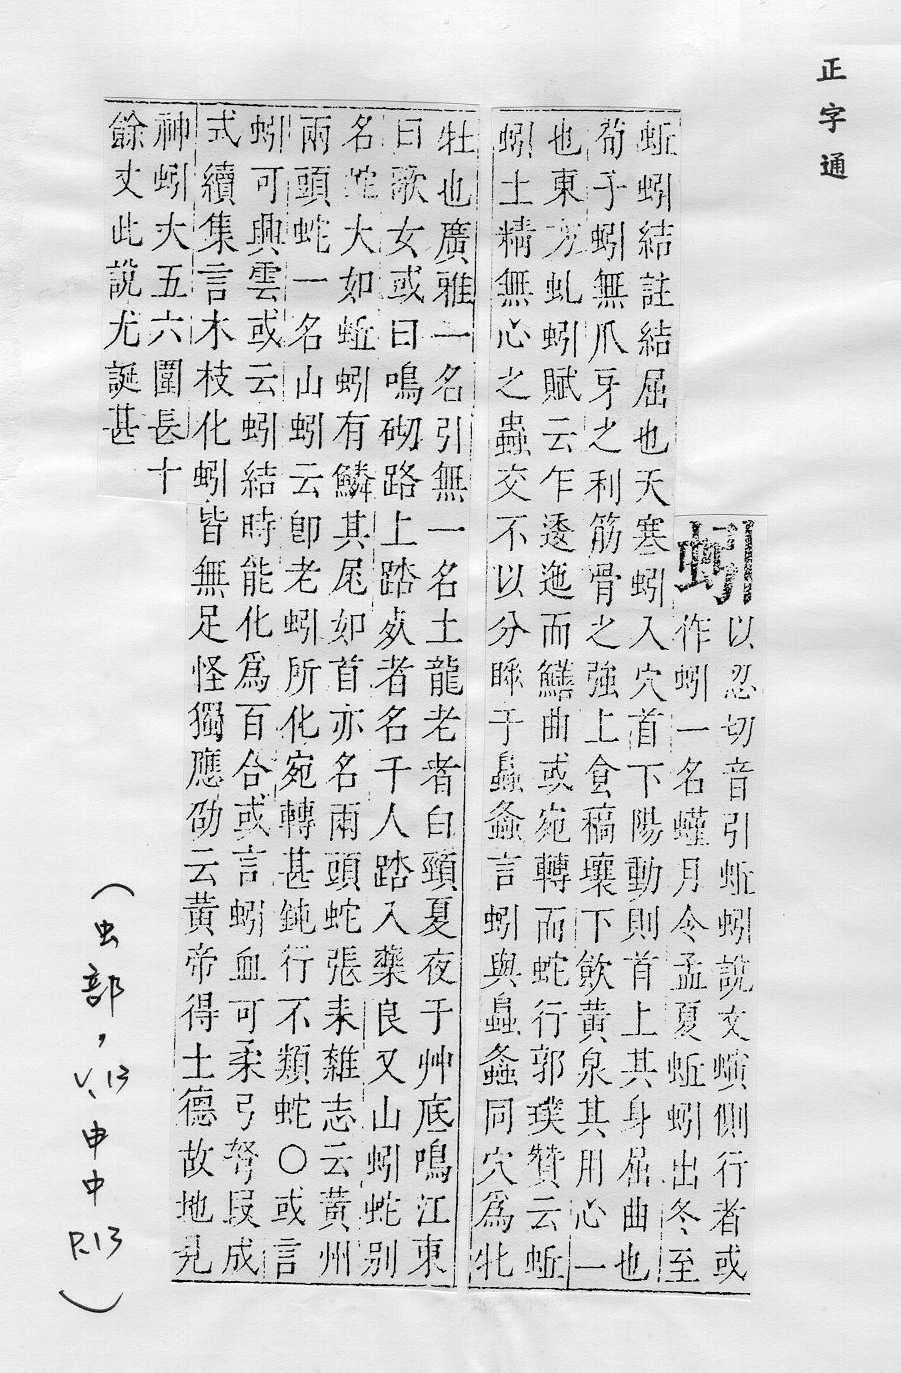 正字通
蚓
以忍切音引蚯蚓說文螾側行者或
作蚓一名螼月令孟夏蚯蚓出冬至
蚯蚓結註結屈也天寒蚓入穴首下陽動則首上其身屈曲也
荀子蚓無爪牙之利筋骨之強上食槁壤下飲黃泉其用心一
也東方虬蚓賦云乍逶迤而鱔曲或宛轉而蛇行郭璞贊云蚯
蚓土精無心之蟲交不以分睽于蟲螽言蚓與蟲螽同穴爲牝
牡也廣雅一名引無一名土龍老者白頸夏夜于艸底鳴江東
曰歌女或曰鳴砌路上踏殀者名千人踏入藥良又山蚓蛇别
名蛇大如蚯蚓有鱗其尾如首亦名兩頭蛇張耒雜志云黃州
兩頭蛇一名山蚓云卽老蚓所化宛轉甚鈍行不類蛇〇或言
蚓可興雲或云蚓結時能化爲百合或言蚓血可柔弓弩段成
式續集言木枝化蚓皆無足怪獨應劭云黃帝得土德故地見
神蚓大五六圍長十
餘丈此說尤誕甚
(虫部，V.13申中P.13)